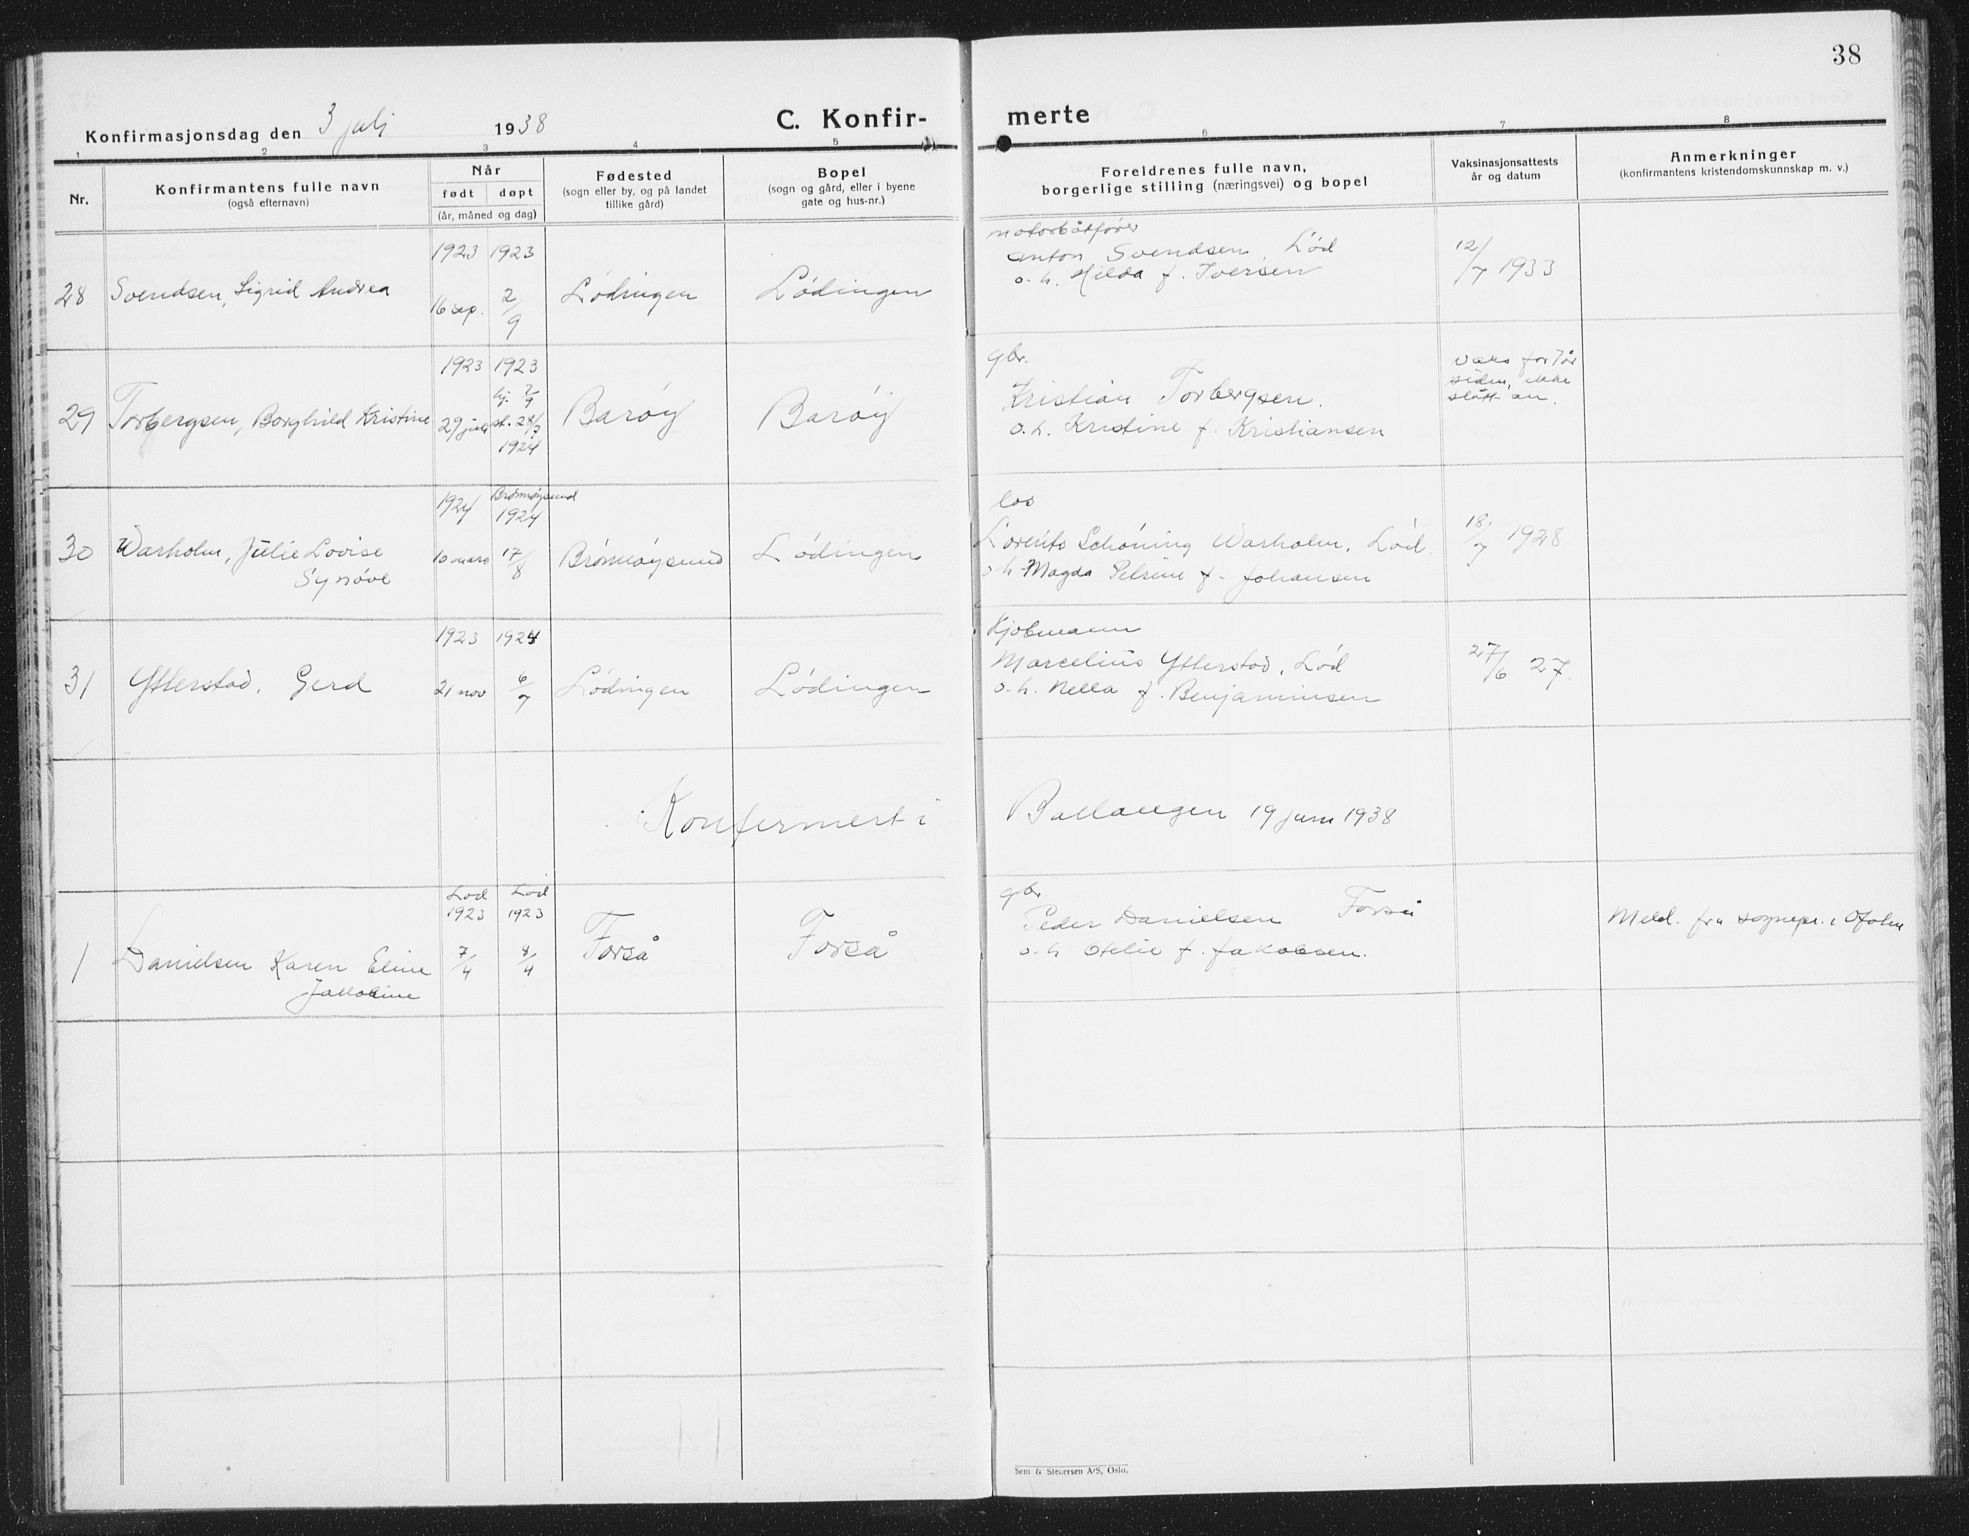 38
Konfirmasjonsdag den 3 juli 1938
C. Konfir- merte
1 2 3 4 5 6 7 8
Nr.
Konfirmantens fulle navn
(også efternavn)
Når
født døpt
(år, måned og dag)
Fødested
(sogn eller by, og på landet
tillike gård)
Bopel
(sogn og gård, eller i byene
gate og hus-nr.)
Foreldrenes fulle navn,
borgerlige stilling (næringsvei) og bopel
Vaksinasjonsattests
år og datum
Anmerkninger
(konfirmantens kristendomskunnskap m. v.)
28
Svendsen, Sigrid Andrea
1923
16 sep.
1923
2/9
Lødingen
Lødingen
motorbåtfører
Anton Svendsen, Lød
o. h. Hilda f. Iversen
12/7 1933
29
Torbergsen, Borghild Kristine
1923
29 juli
1923
hj. 2/9
st. 28/3
1924
Barøy
Barøy
gbr.
Kristian Torbergsen.
o. h. Kristine f. Kristiansen
vaks for 7 år
siden, ikke
slått an.
30
Warholm, Julie Lovise
Synøve
1924
10 mars
Brønnøysund
1924
17/8
Brønnøysund
Lødingen
los
Lorents Schøning Warholm, Lød.
o h Magda Petrine f. Johansen
18/7 1928
31
Ytterstad, Gerd
1923
21 nov
1924
6/7
Lødingen
Lødingen
Kjøbmann
Marcelius Ytterstad, Lød
o. h. Nella f. Benjaminsen
27/6 27.
Konfermert i Ballangen 19 juni 1938
1
Danielsen Karen Eline
Jakobine
Lød
1923
7/4
Lød
1923
8/4
Forså
Forså
gbr
Peder Danielsen Forså
o. h Otelie f. Jakobsen.
Meld. fra sognepr. i Ofoten
Sem & Stenersen A/S, Oslo.